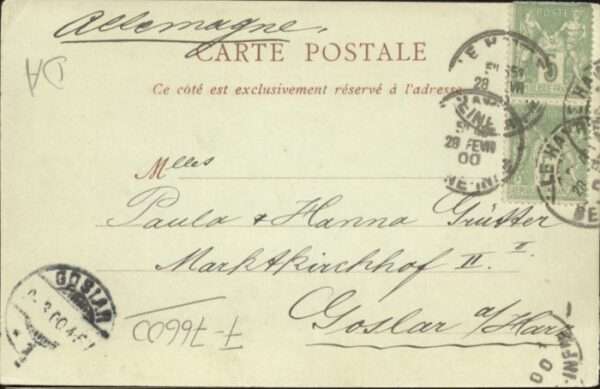 Allemagne.
CARTE POSTALE
Ce côté est exclusivement réservé à l'adresse
DA
Mlles
Paula & Hanna Grütter
Marktkirchhof II. II
Goslar a/Harz
7-76600
LE HAVRE
28 FEVR
28 FEVR
00
LE HAVRE
GOSLAR